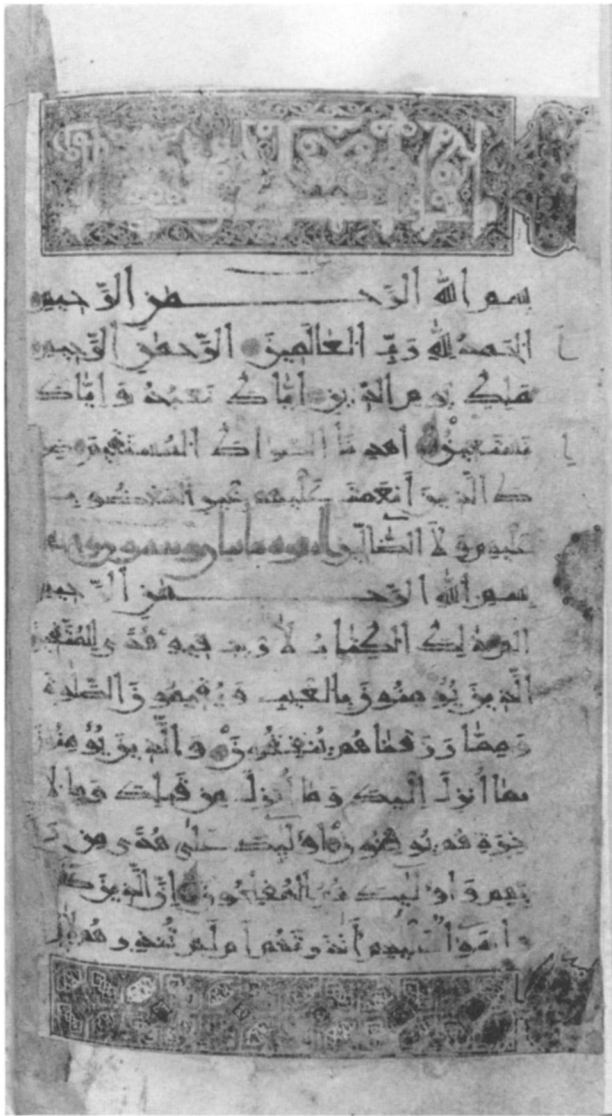 بسم الله الرَّحمن الرَّحيم
الحَمدُ لِلّهِ رَبِّ العَالَمِينَ الرَّحمنِ الرَّحِيمِ
مَلِكِ يَومِ الدِّينِ إِيَّاكَ نَعبُدُ وَإِيَّاكَ
نَستَعِينُ اهدِنَا الصِّرَاطَ المُستَقِيمَ صِرَ
طَ الَّذِينَ أَنعَمتَ عَلَيهِم غَيرِ المَغضُوبِ
عَلَيهِم وَلاَ الضَّالِّينَ
بسم الله الرَّحمن الرَّحيم
الم ذلِكَ الكِتَابُ لاَ رَيبَ فِيهِ هُدًى لِلمُتَّقِينَ
الَّذِينَ يُؤمِنُونَ بِالغَيبِ وَيُقِيمُونَ الصَّلوةَ
وَمِمَّا رَزَقنَاهُم يُنفِقُونَ وَالَّذِينَ يُؤمِنُونَ
بِمَا أُنزِلَ إِلَيكَ وَمَا أُنزِلَ مِن قَبلِكَ وَبِالا
خِرَةِ هُم يُوقِنُونَ أُولئِكَ عَلَى هُدًى مِن رَ
بِّهِم وَأُولئِكَ هُمُ المُفلِحُونَ إِنَّ الَّذِينَ كَفَ
رُوا سَوَاءٌ عَلَيهِم أَأَنذَرتَهُم أَم لَم تُنذِرهُم لاَ